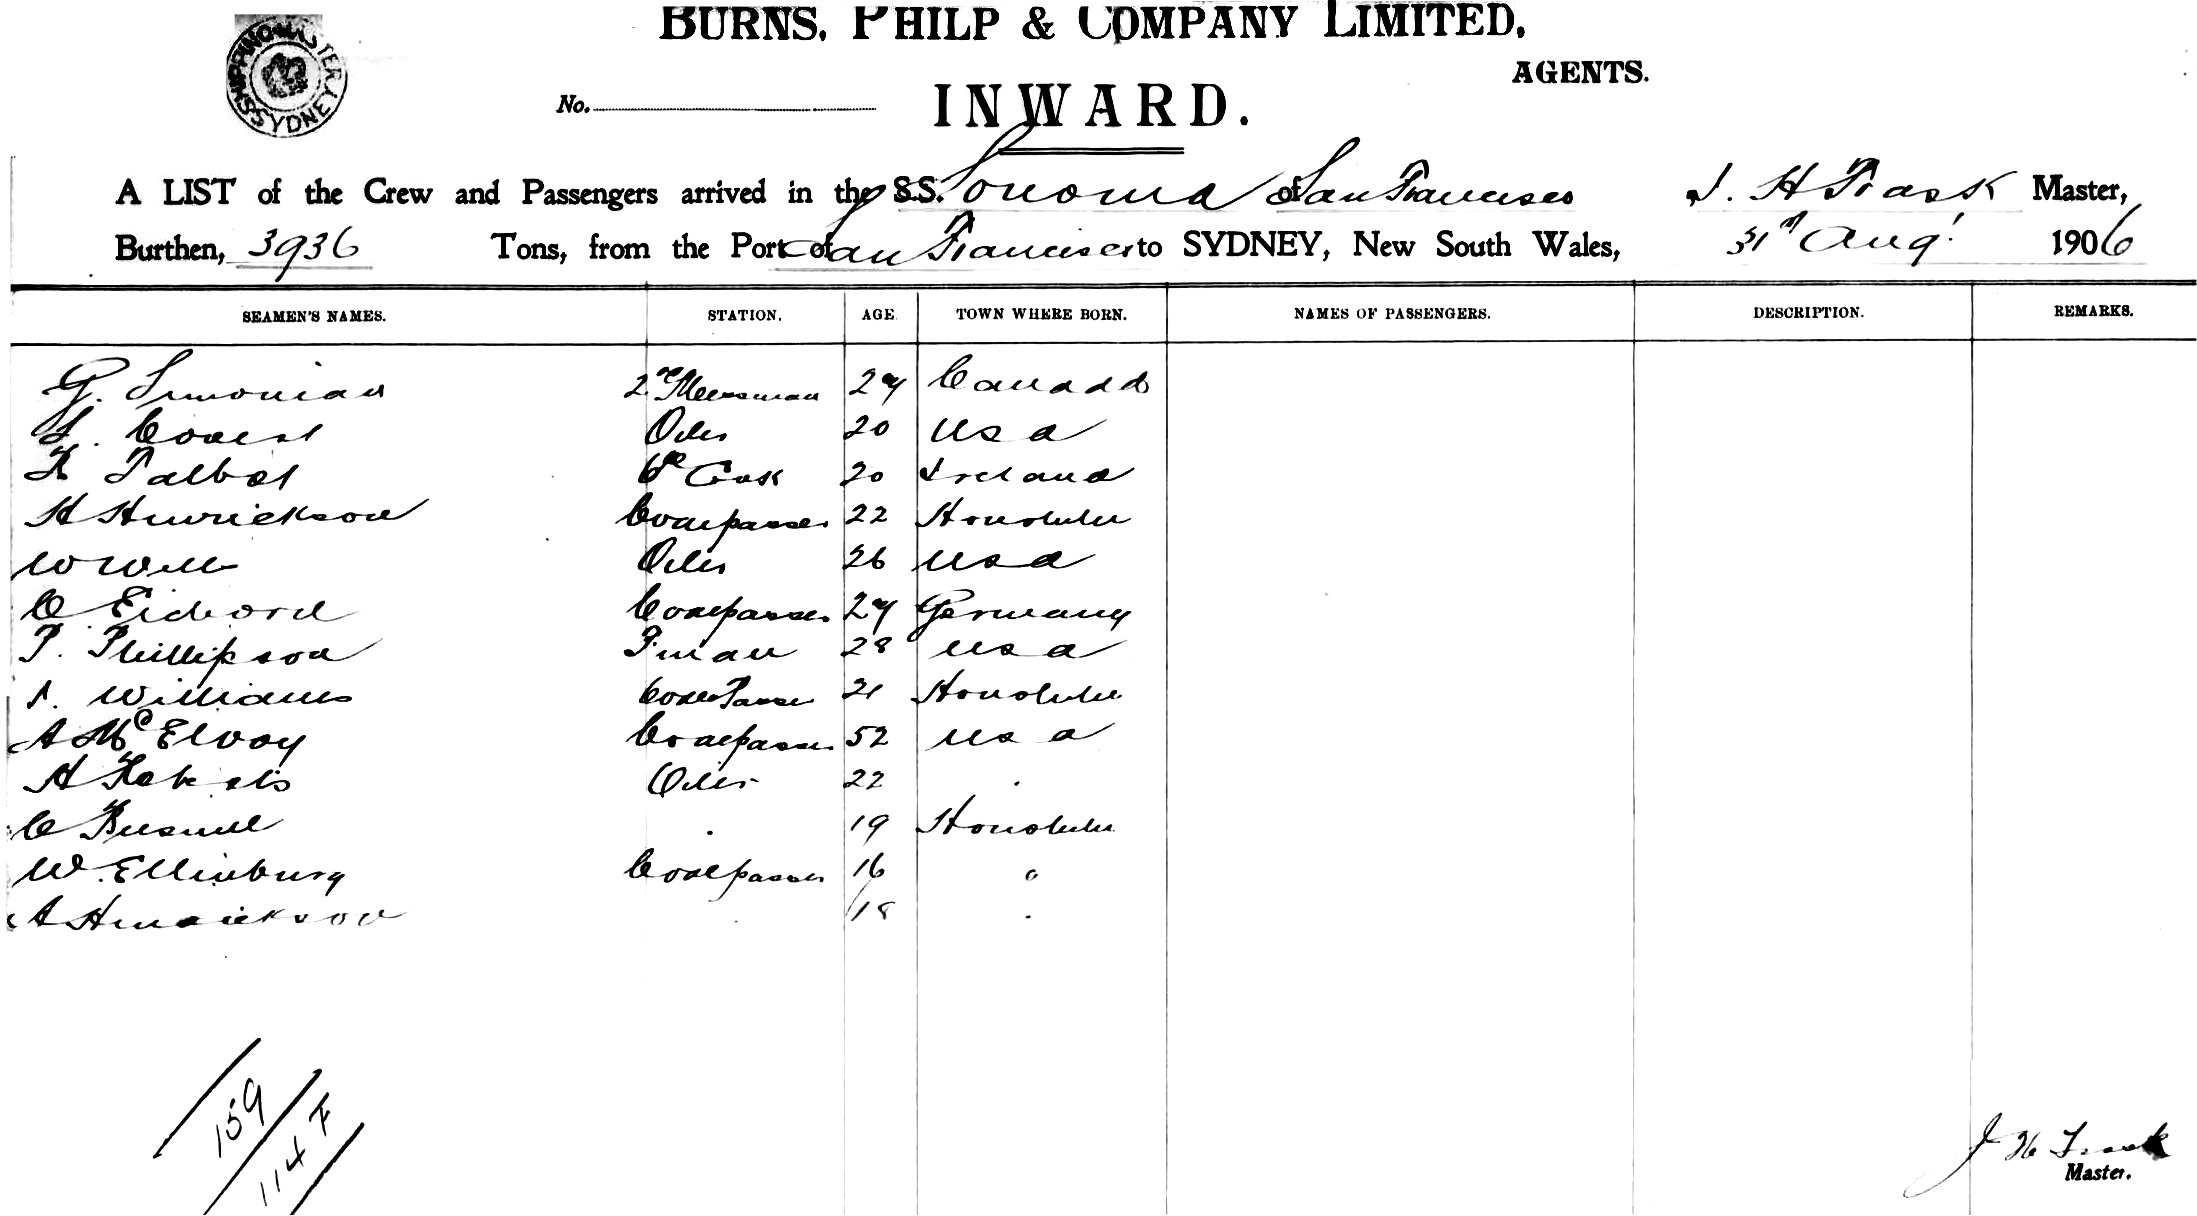 SHIPPING MASTER SYDNEY
BURNS, PHILP & COMPANY LIMITED,
AGENTS.
No.
INWARD.
A LIST of the Crew and Passengers arrived in the S.S. Sonoma of San Francisco J. H Trask Master,
Burthen, 3936 Tons, from the Port of San Francisco to SYDNEY, New South Wales, 31st Aug 1906
SEAMEN'S NAMES. STATION. AGE. TOWN WHERE BORN. NAMES OF PASSENGERS. DESCRIPTION. REMARKS.
G. Simonian 2nd Messman 27 Canada
Oiler 20 USA
Talbot Cook 20 Ireland
H Hinrickson Coalpasser 22 Honolulu
W Will Oiler 26 USA
C Coalpasser 27 Germany
P. Phillipson F.man 28 USA
J. Williams Coal Passer 21 Honolulu
A McElvoy Coalpasser 52 USA
A Oiler 22 "
C " 19 Honolulu
W. Ellinburg Coalpasser 16 "
A Hendrickson " 18 "
159
114 F
J H Trask
Master.